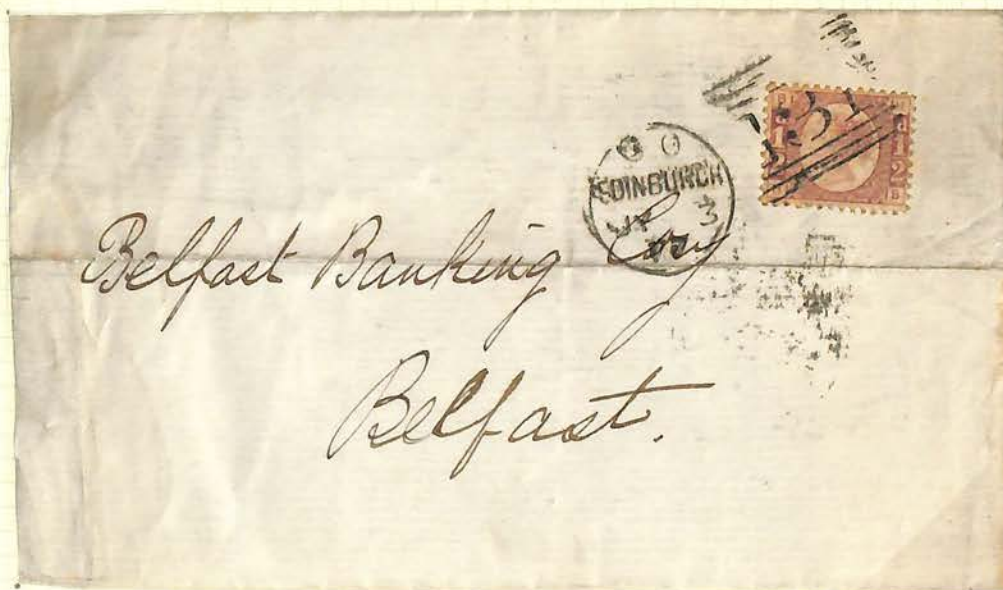 EDINBURGH
3
Belfast Banking Coy
Belfast.